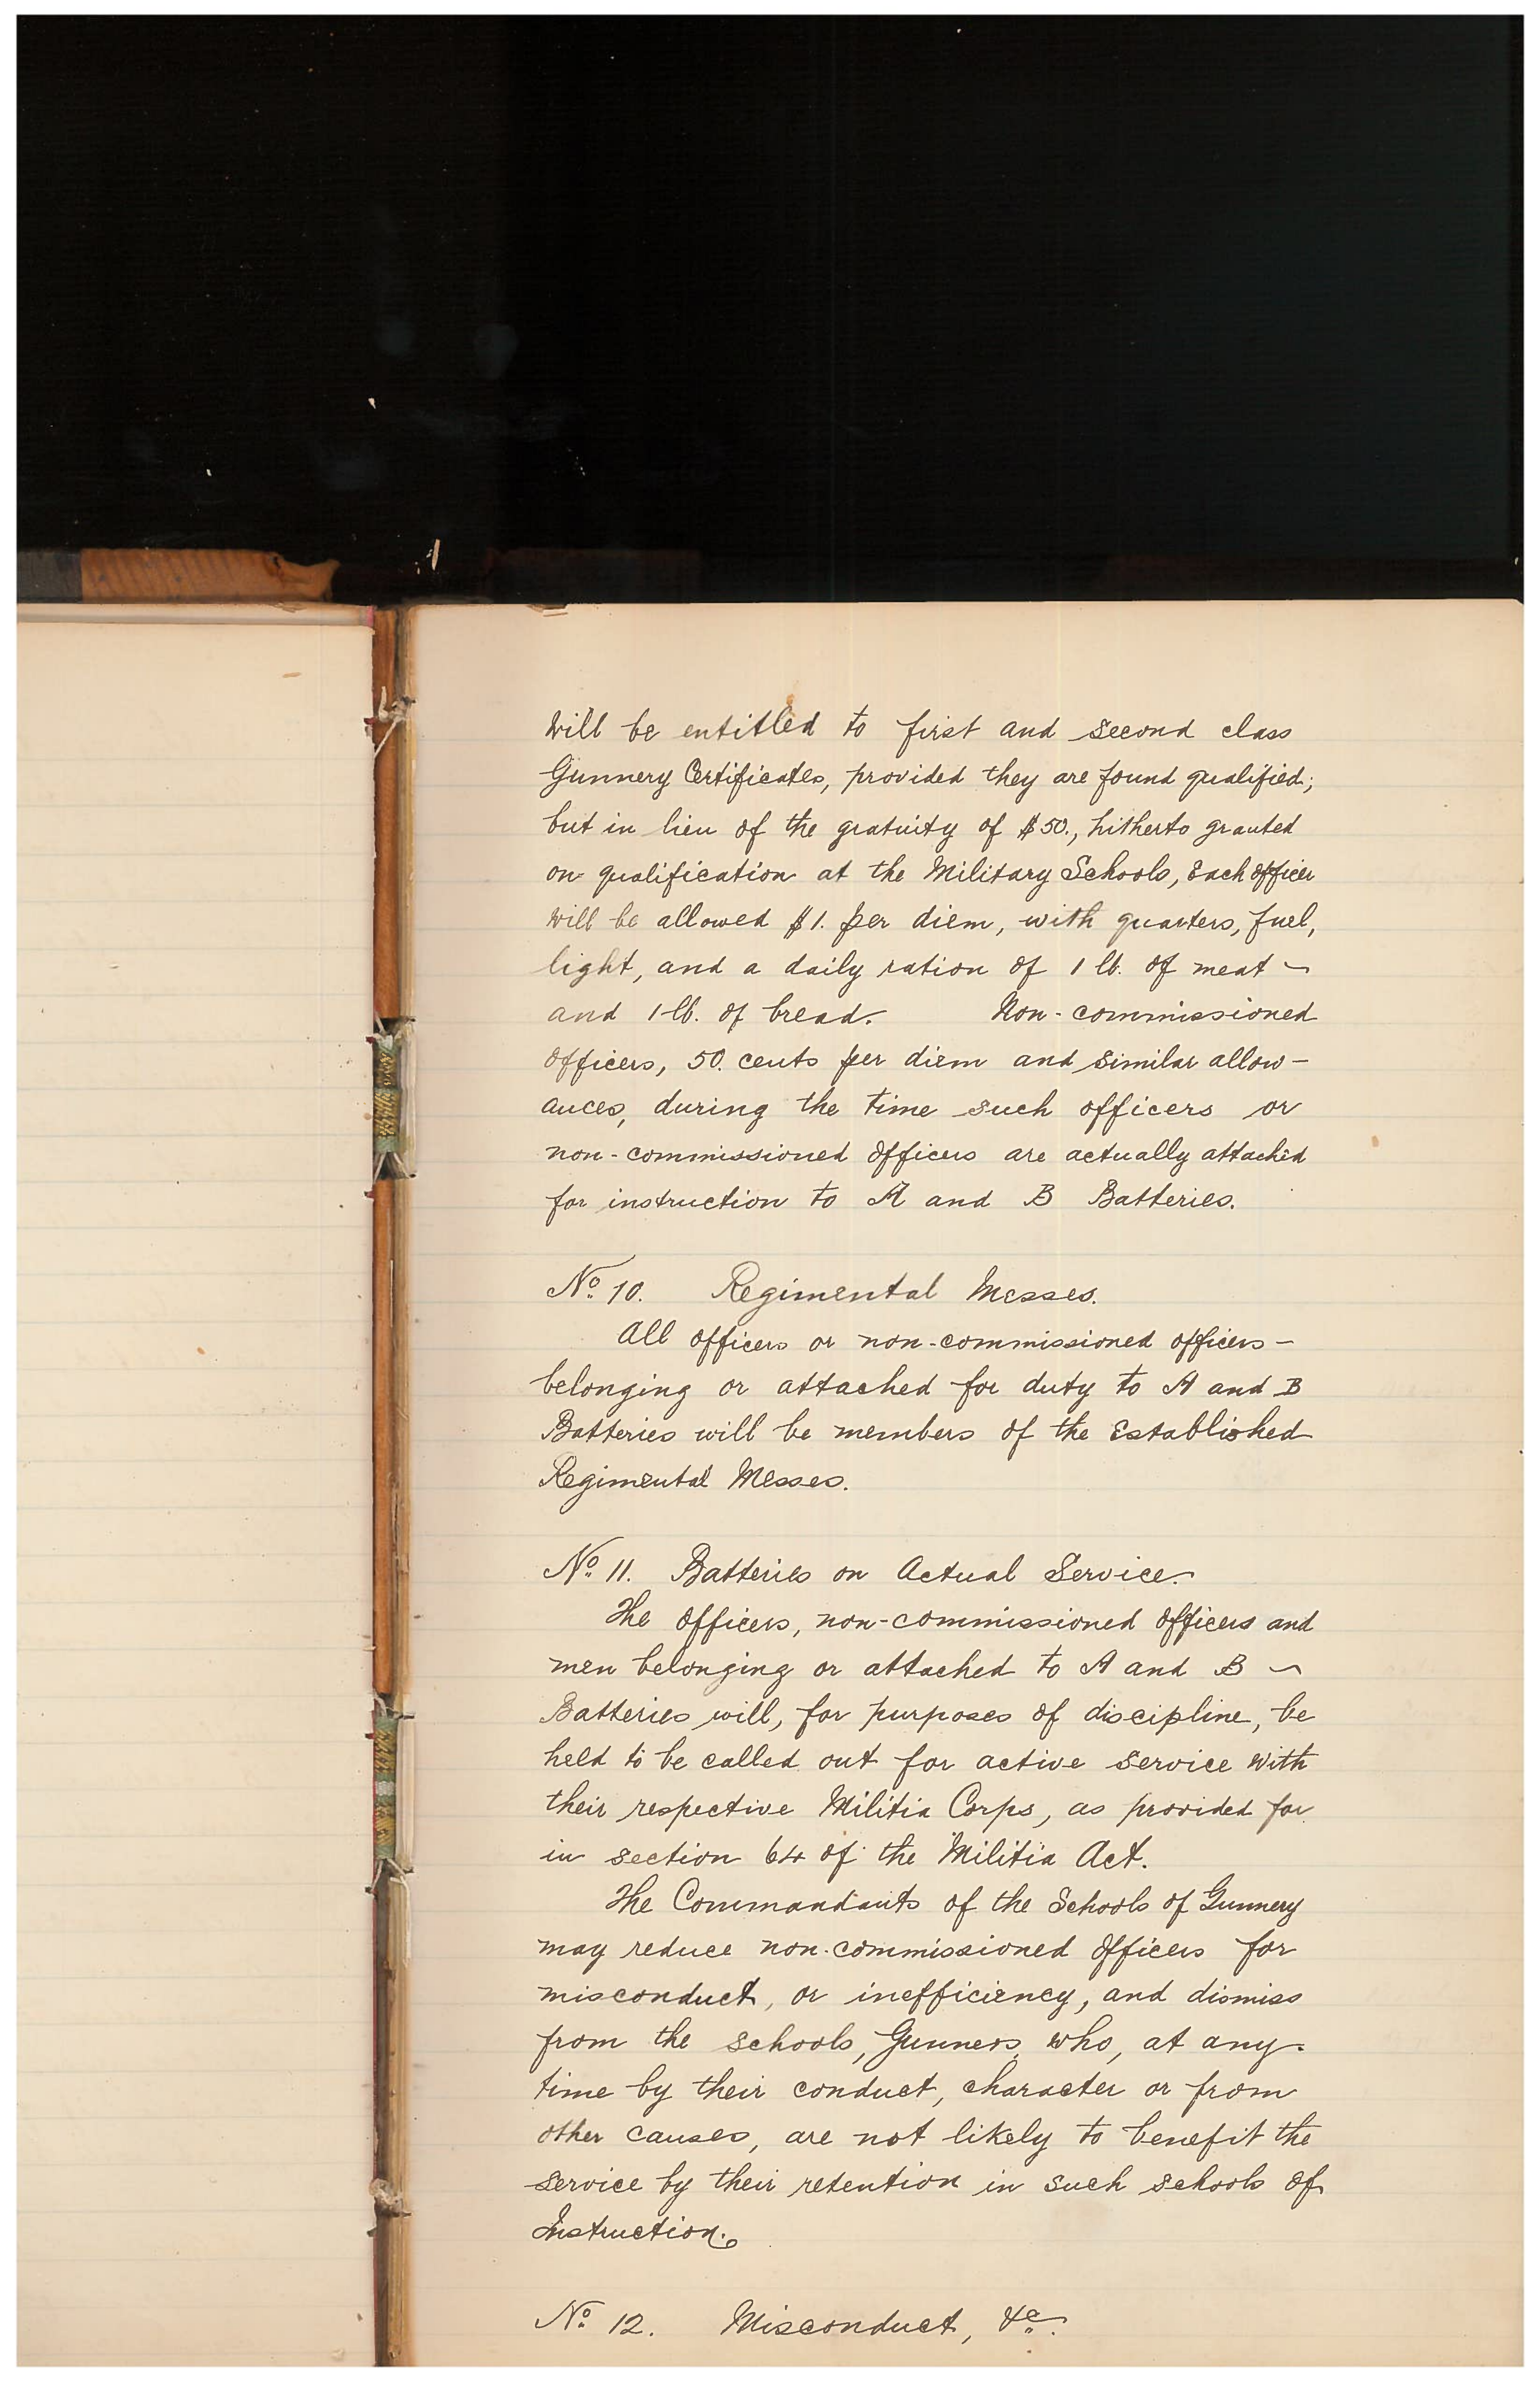 will be entitled to first and second class
Gunnery Certificates, provided they are found qualified;
but in lieu of the gratuity of $50., hitherto granted
on qualification at the Military Schools, Each officer
will be allowed $1. per diem, with quarters, fuel,
light, and a daily ration of 1 lb. of meat
and 1 lb. of bread. Non-commissioned
officers, 50. cents per diem and similar allow-
ances, during the time such officers or
non-commissioned officers are actually attached
for instruction to A and B Batteries.
No. 10. Regimental Messes.
All officers or non-commissioned officers -
belonging or attached for duty to A and B
Batteries will be members of the Established
Regimental Messes.
No. 11. Batteries on Actual Service.
The officers, non-commissioned officers and
men belonging or attached to A and B
Batteries will, for purposes of discipline, be
held to be called out for active service with
their respective Militia Corps, as provided for
in section 64 of the Militia Act.
The Commandants of the Schools of Gunnery
may reduce non-commissioned officers for
misconduct, or inefficiency, and dismiss
from the schools, Gunners, who, at any
time by their conduct, character or from
other causes, are not likely to benefit the
service by their retention in such schools of
Instruction.
No. 12. Misconduct, &c.